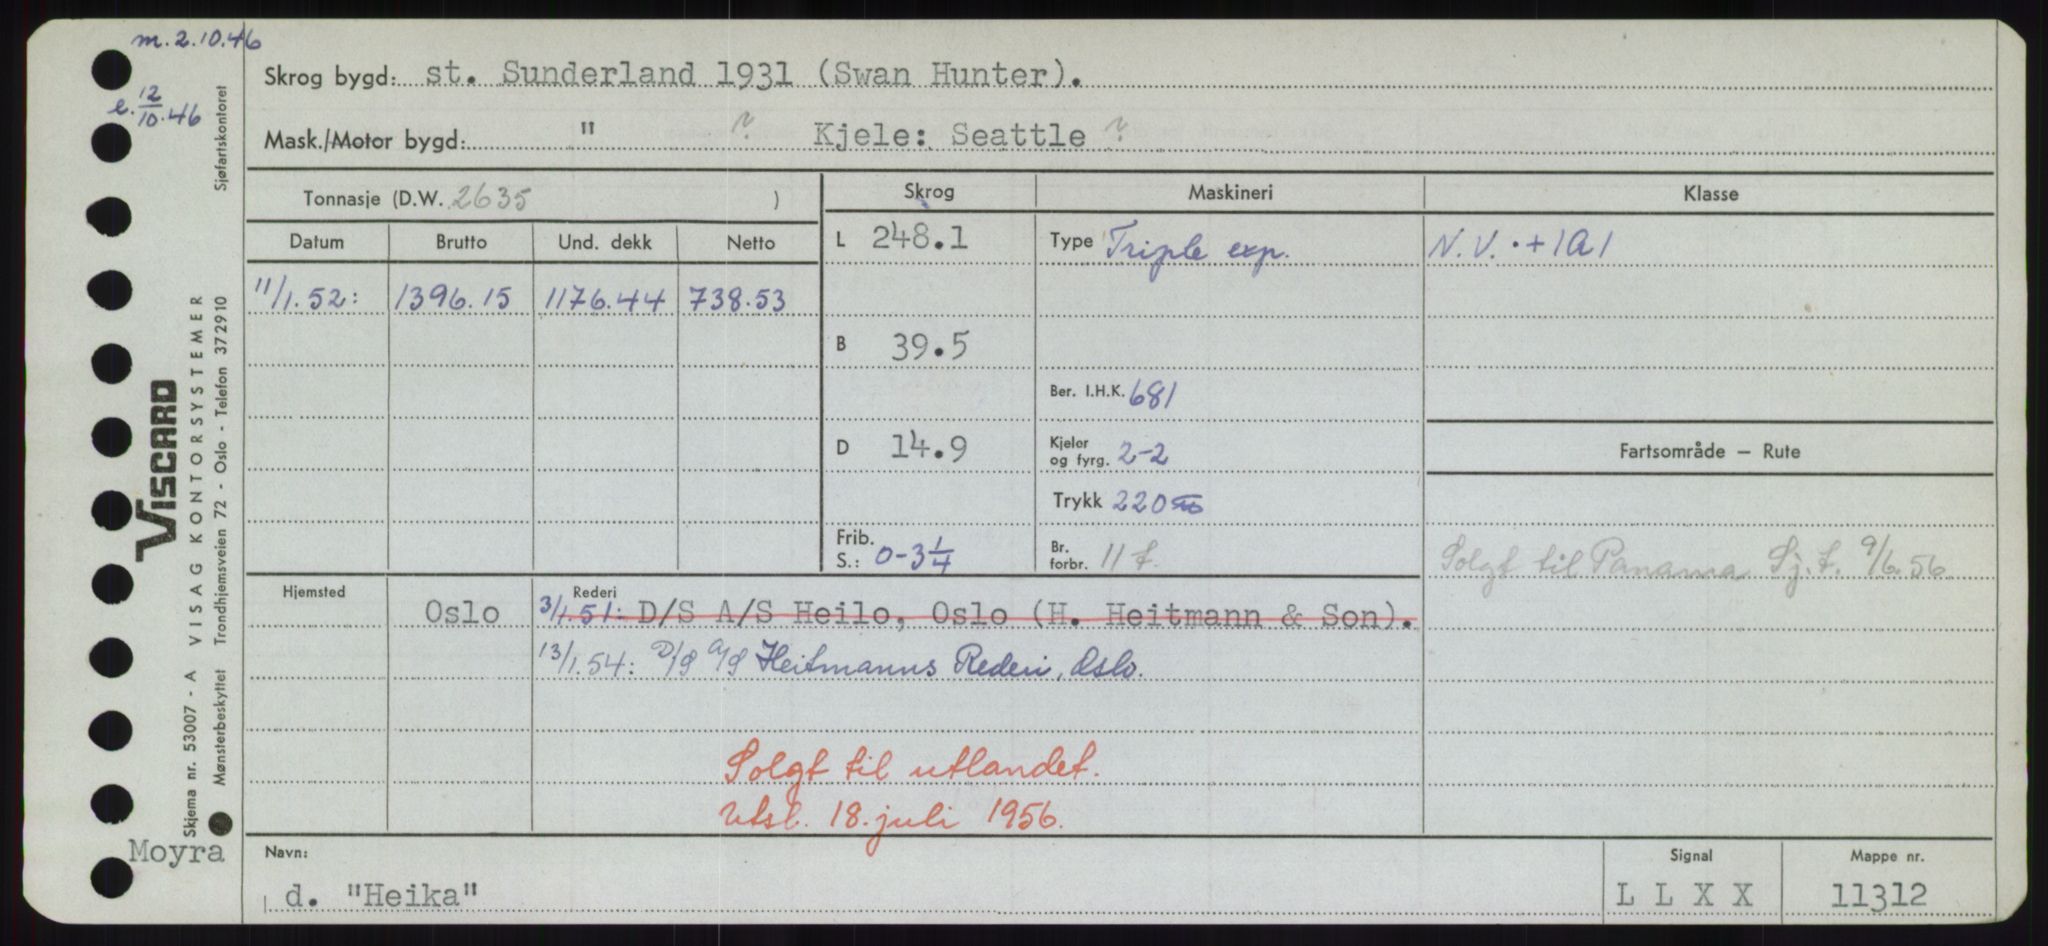 m. 2.10.46
e. 12/10.46
Skrog bygd: st. Sunderland 1931 (Swan Hunter).
Mask./Motor bygd: " ? Kjele: Seattle ?
Sjøfartskontoret
Tonnasje (D.W. 2635 )
Skrog
Maskineri
Klasse
Datum Brutto Und. dekk Netto
L 248.1
Type Triple exp.
N.V. + 1A1
11/1.52: 1396.15 1176.44 738.53
B 39.5
Ber. I.H.K. 681
D 14.9
Kjeler og fyrg. 2-2
Fartsområde — Rute
Trykk 220
Frib. S.: 0-3 1/4
Br. forbr. 11 t.
Solgt til Panama Sj.t. 9/6.56
Hjemsted
Rederi
Oslo 3/1.51: D/S A/S Heilo, Oslo (H. Heitmann & Son).
13/1.54: D/S A/S Heitmanns Rederi, Oslo.
Solgt til utlandet.
Utsl. 18. juli 1956.
VISCARD
Skjema nr. 53007 - A VISAG KONTORSYSTEMER
Mønsterbeskyttet Trondhjemsveien 72 - Oslo - Telefon 372910
Moyra
Navn:
d. "Heika"
Signal
L L X X
Mappe nr.
11312